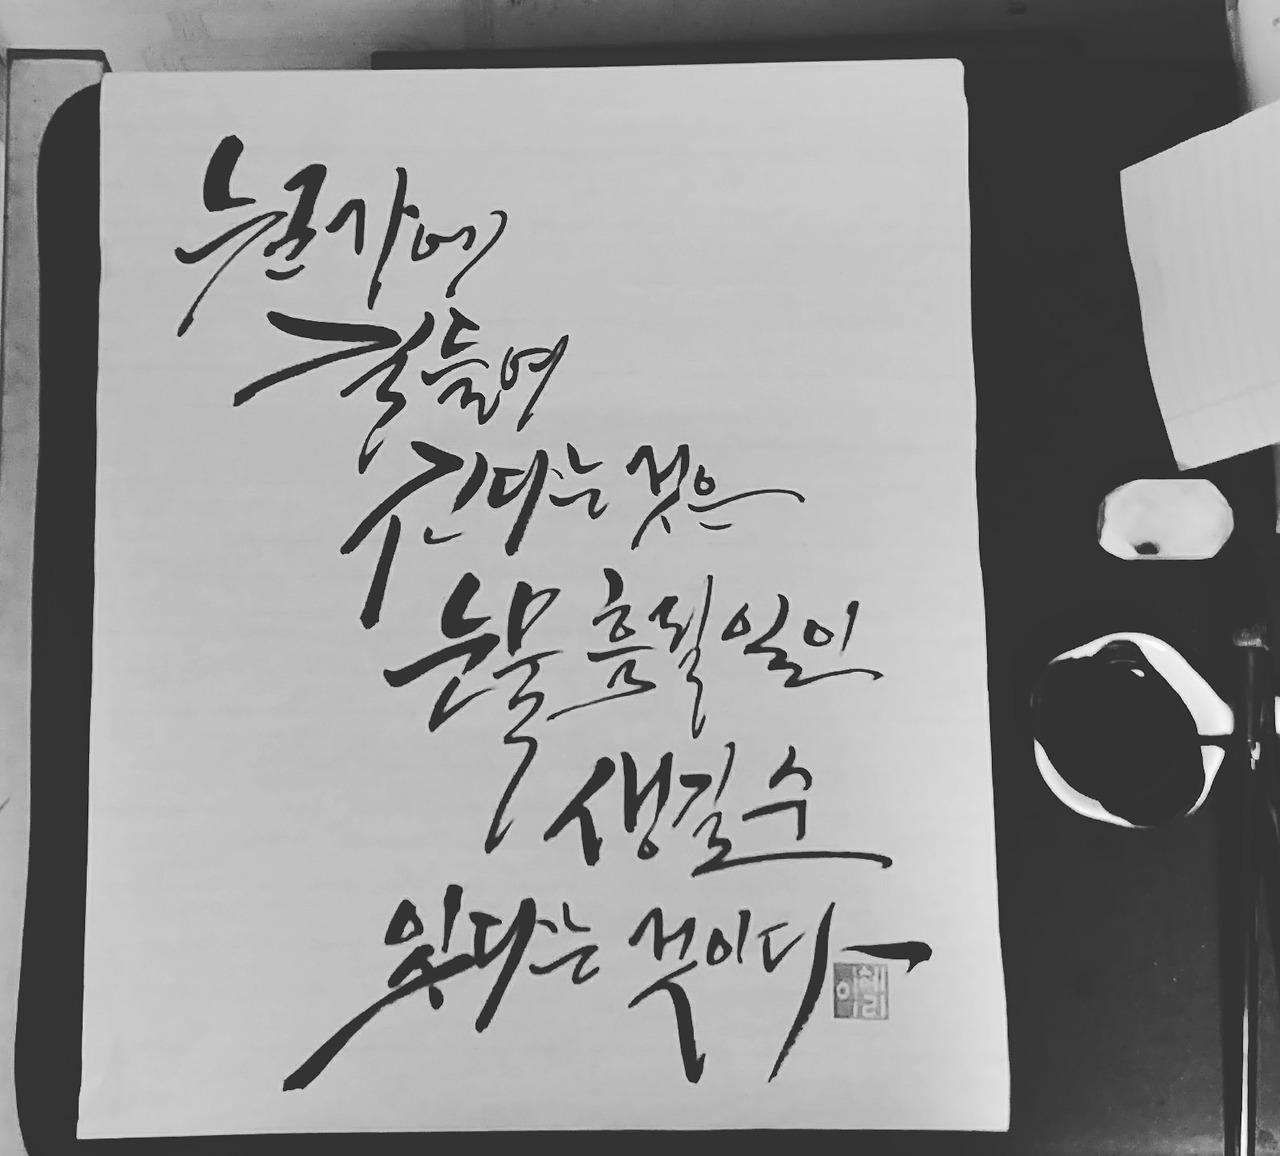 누군가에
길들여
진다는 것은
눈물 흘릴 일이
생길 수
있다는 것이다
이혜리